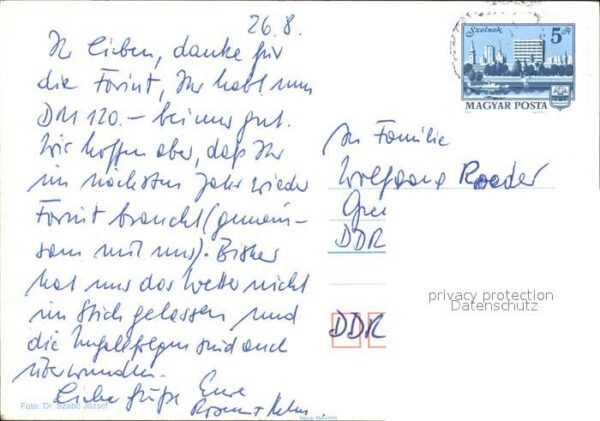 26.8.
Ihr lieben, danke für
die Forint, Ihr habt nun
DM 120.– bei mir gut.
Wir hoffen aber, daß Ihr
im nächsten Jahr wieder
Forint braucht (gemein-
sam mit mir). Bisher
hat uns das Wetter nicht
im Stich gelassen und
die sind auch
überwunden.
Liebe Grüße Eure
Foto: Dr. Szabó József
Szolnok
5 Ft
MAGYAR POSTA
An Familie
Wolfgang Roeder
DDR
DDR
privacy protection
Datenschutz